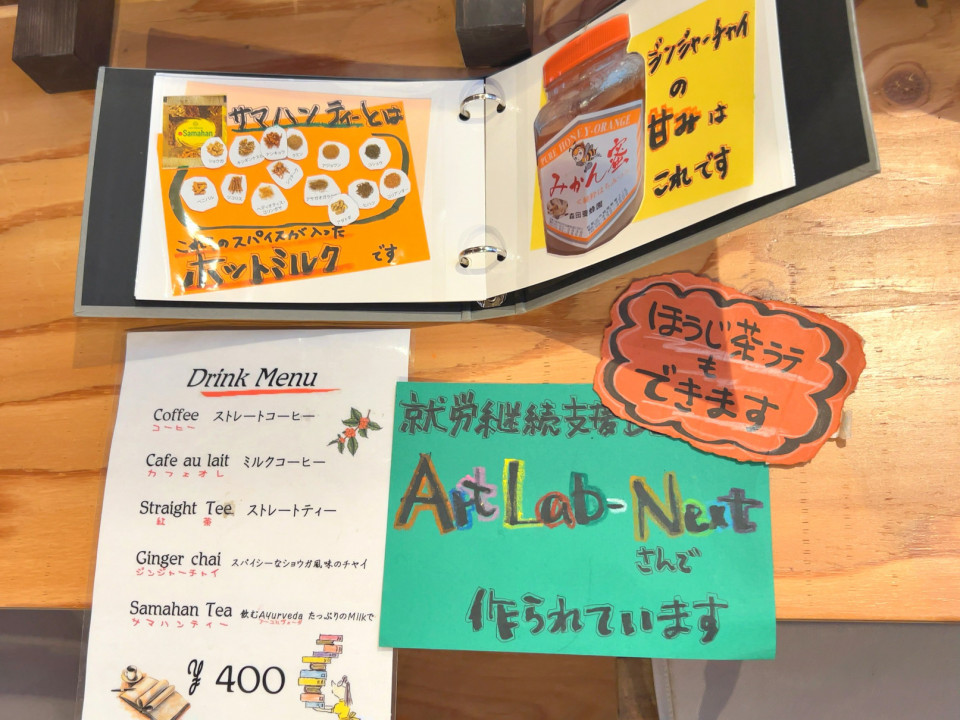 サマハンティーとは
Samahan
スパイスが入った
ホットミルク です
ジンジャーチャイ
の
甘みは
これです
PURE HONEY-ORANGE
みかん蜜
森田養蜂園
ほうじ茶ラテ
も
できます
Drink Menu
Coffee ストレートコーヒー
コーヒー
Cafe au lait ミルクコーヒー
カフェオレ
Straight Tee ストレートティー
紅 茶
Ginger chai スパイシーなショウガ風味のチャイ
ジンジャーチャイ
Samahan Tea 飲むAyurveda たっぷりのMilkで
サマハンティー アーユルヴェーダ
¥ 400
就労継続支援
Art Lab-Next
さんで
作られています